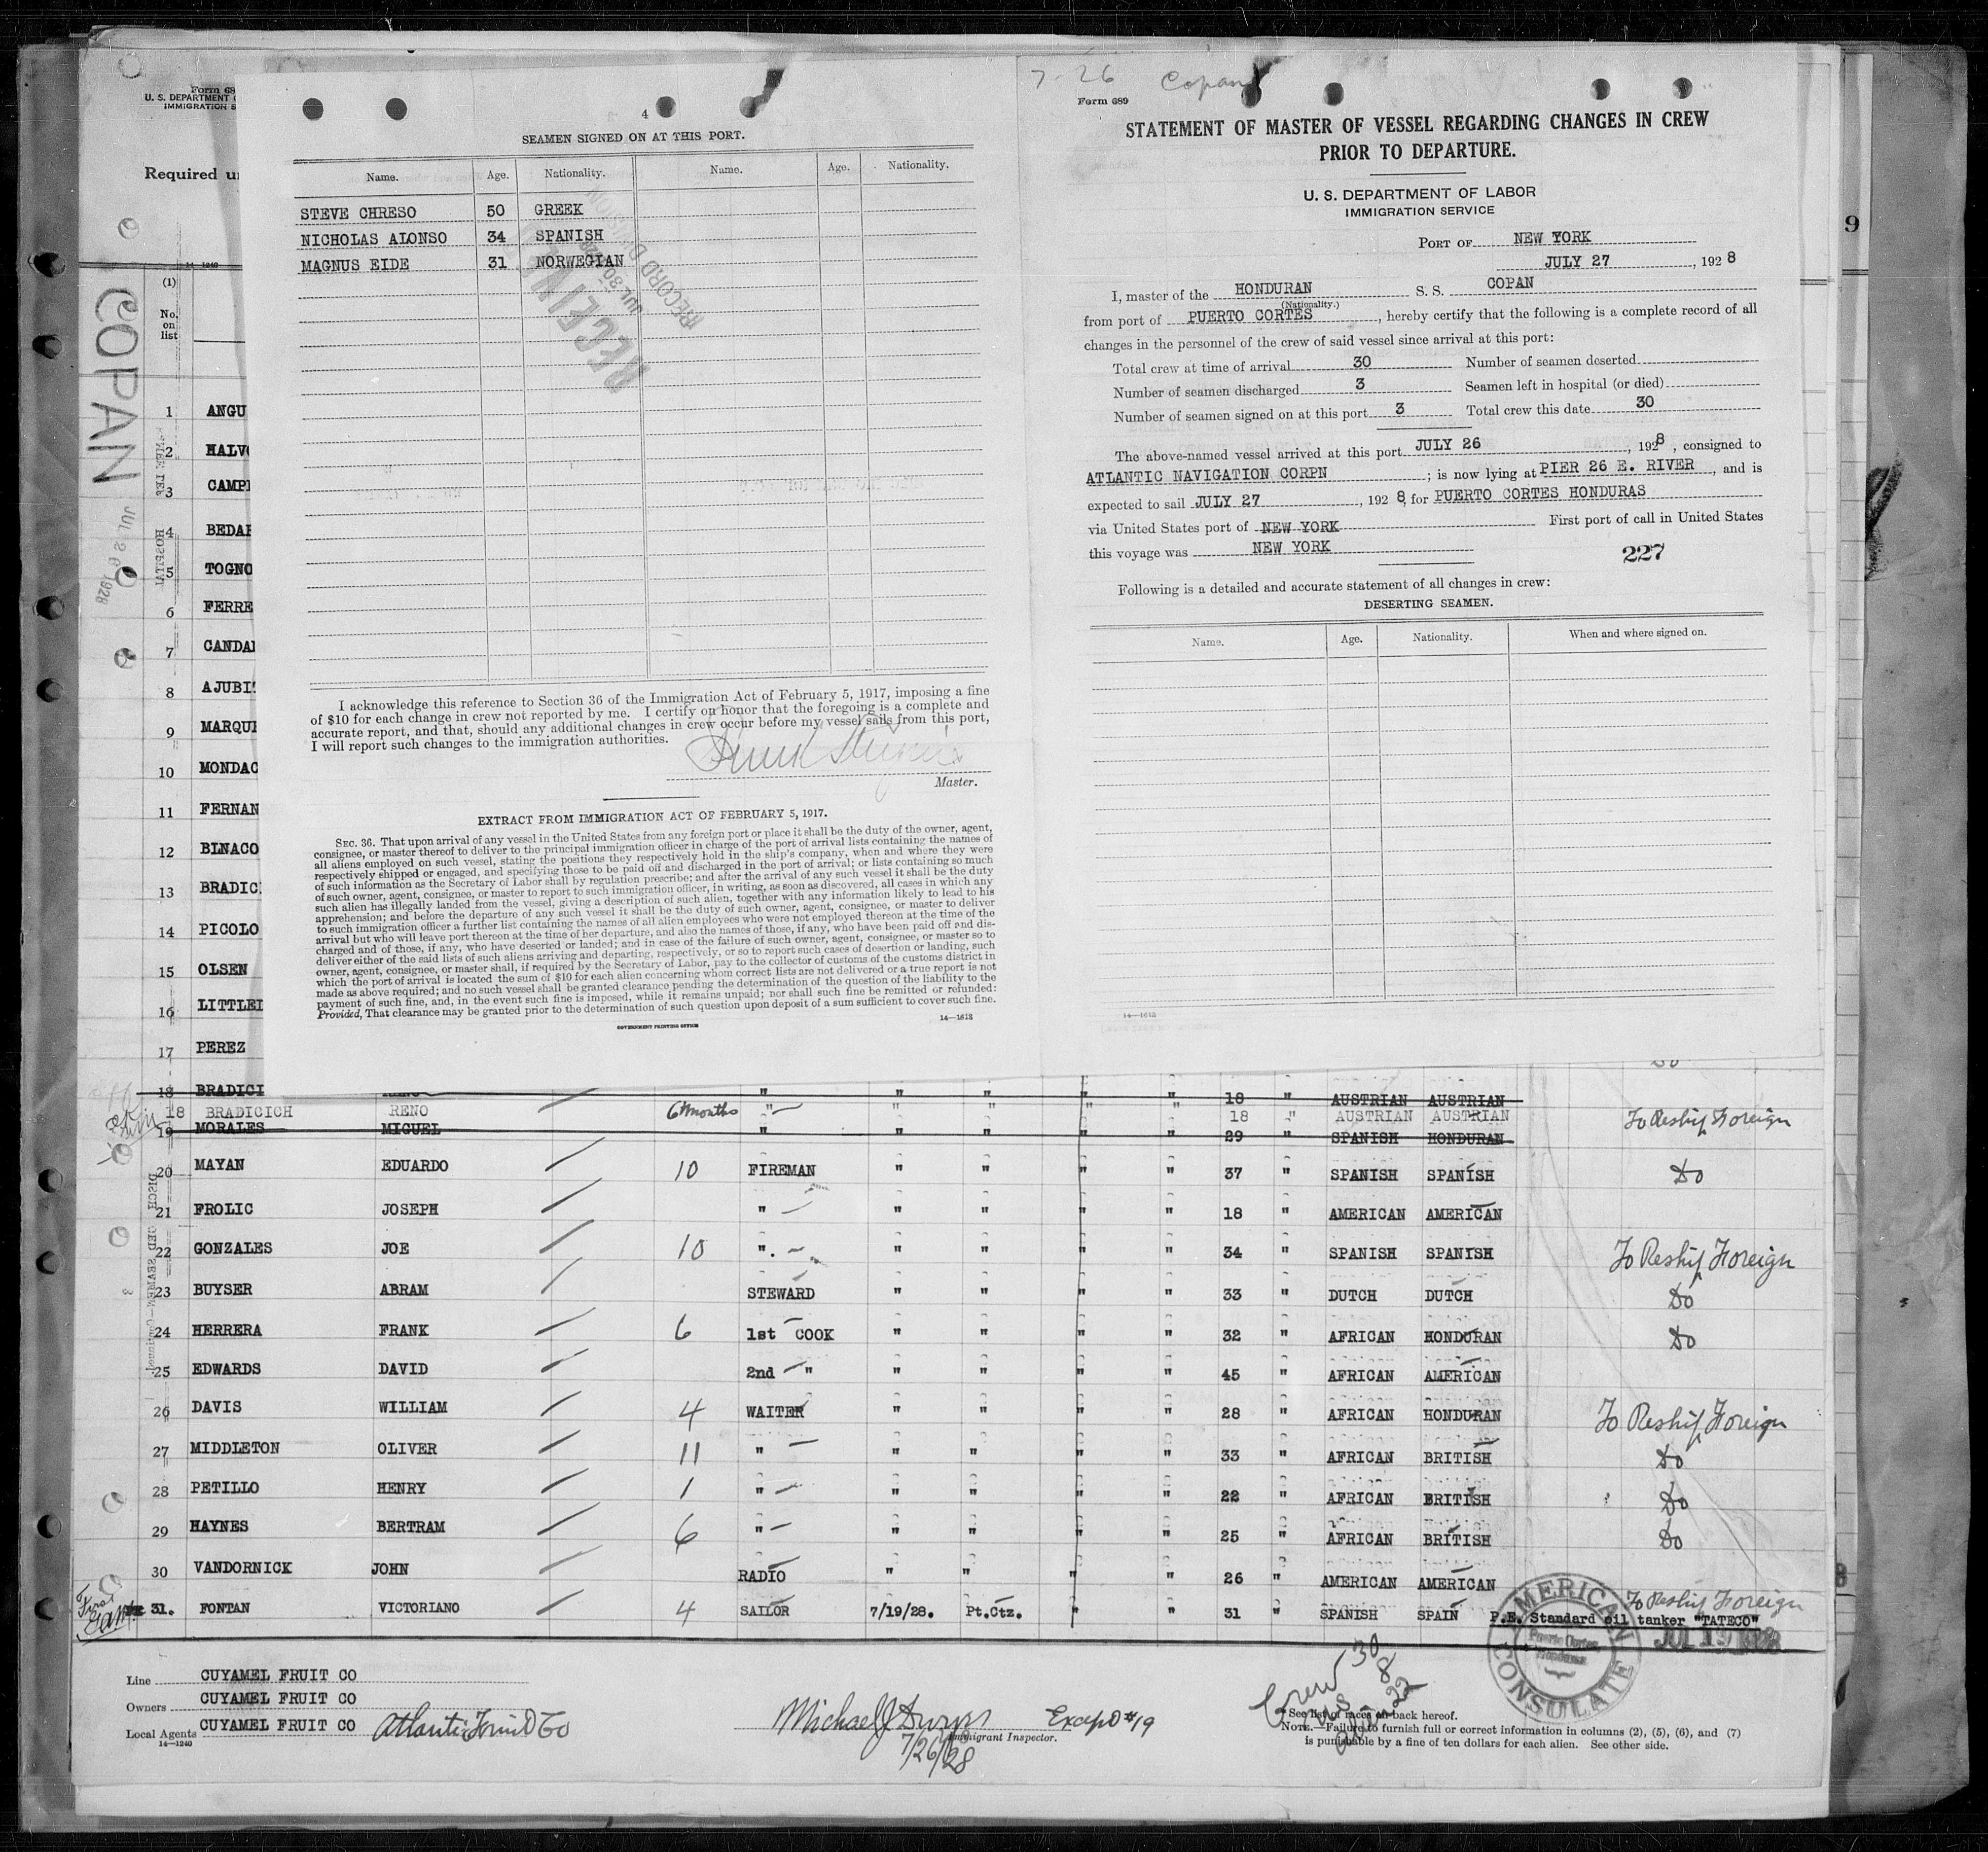 Form 68
U. S. DEPARTMENT
IMMIGRATION S
Required u
14—1240
(1)
No. on list
COPAN
JUL 26 1928
HOSPITAL
1 ANGU
2 HALV
3 CAMP
4 BEDA
5 TOGNO
6 FERRE
7 CANDA
8 AJUBI
9 MARQU
10 MONDAC
11 FERNAN
12 BINACO
13 BRADIC
14 PICOLO
15 OLSEN
16 LITTLE
17 PEREZ
4
SEAMEN SIGNED ON AT THIS PORT.
Name. Age. Nationality. Name. Age. Nationality.
STEVE CHRESO 50 GREEK
NICHOLAS ALONSO 34 SPANISH
MAGNUS EIDE 31 NORWEGIAN
RECEIVED
JUL 30 1928
RECORD DIVISION
I acknowledge this reference to Section 36 of the Immigration Act of February 5, 1917, imposing a fine
of $10 for each change in crew not reported by me. I certify on honor that the foregoing is a complete and
accurate report, and that, should any additional changes in crew occur before my vessel sails from this port,
I will report such changes to the immigration authorities.
Master.
EXTRACT FROM IMMIGRATION ACT OF FEBRUARY 5, 1917.
SEC. 36. That upon arrival of any vessel in the United States from any foreign port or place it shall be the duty of the owner, agent,
consignee, or master thereof to deliver to the principal immigration officer in charge of the port of arrival lists containing the names of
all aliens employed on such vessel, stating the positions they respectively hold in the ship's company, when and where they were
respectively shipped or engaged, and specifying those to be paid off and discharged in the port of arrival; or lists containing so much
of such information as the Secretary of Labor shall by regulation prescribe; and after the arrival of any such vessel it shall be the duty
of such owner, agent, consignee, or master to report to such immigration officer, in writing, as soon as discovered, all cases in which any
such alien has illegally landed from the vessel, giving a description of such alien, together with any information likely to lead to his
apprehension; and before the departure of any such vessel it shall be the duty of such owner, agent, consignee, or master to deliver
to such immigration officer a further list containing the names of all alien employees who were not employed thereon at the time of the
arrival but who will leave port thereon at the time of her departure, and also the names of those, if any, who have been paid off and dis-
charged and of those, if any, who have deserted or landed; and in case of the failure of such owner, agent, consignee, or master so to
deliver either of the said lists of such aliens arriving and departing, respectively, or so to report such cases of desertion or landing, such
owner, agent, consignee, or master shall, if required by the Secretary of Labor, pay to the collector of customs of the customs district in
which the port of arrival is located the sum of $10 for each alien concerning whom correct lists are not delivered or a true report is not
made as above required; and no such vessel shall be granted clearance pending the determination of the question of the liability to the
payment of such fine, and, in the event such fine is imposed, while it remains unpaid; nor shall such fine be remitted or refunded:
Provided, That clearance may be granted prior to the determination of such question upon deposit of a sum sufficient to cover such fine.
GOVERNMENT PRINTING OFFICE 14—1612
7-26 Copan
Form 689
STATEMENT OF MASTER OF VESSEL REGARDING CHANGES IN CREW
PRIOR TO DEPARTURE.
U. S. DEPARTMENT OF LABOR
IMMIGRATION SERVICE
PORT OF NEW YORK
JULY 27, 1928
I, master of the HONDURAN S. S. COPAN
(Nationality.)
from port of PUERTO CORTES, hereby certify that the following is a complete record of all
changes in the personnel of the crew of said vessel since arrival at this port:
Total crew at time of arrival 30 Number of seamen deserted
Number of seamen discharged 3 Seamen left in hospital (or died)
Number of seamen signed on at this port 3 Total crew this date 30
The above-named vessel arrived at this port JULY 26, 1928, consigned to
ATLANTIC NAVIGATION CORPN; is now lying at PIER 26 E. RIVER, and is
expected to sail JULY 27, 1928, for PUERTO CORTES HONDURAS
via United States port of NEW YORK First port of call in United States
this voyage was NEW YORK
227
Following is a detailed and accurate statement of all changes in crew:
DESERTING SEAMEN.
Name. Age. Nationality. When and where signed on.
14—1612
9
18 BRADICI RENO " " " " " 18 " AUSTRIAN AUSTRIAN
18 BRADICICH RENO 6 months " " " " " 18 " AUSTRIAN AUSTRIAN To Reship Foreign
19 MORALES MIGUEL " " " " " 29 " SPANISH HONDURAN
20 MAYAN EDUARDO 10 FIREMAN " " " " 37 " SPANISH SPANISH Do
21 FROLIC JOSEPH " " " " " 18 " AMERICAN AMERICAN
22 GONZALES JOE 10 " " " " " 34 " SPANISH SPANISH To Reship Foreign
23 BUYSER ABRAM STEWARD " " " " 33 " DUTCH DUTCH Do
24 HERRERA FRANK 6 1st COOK " " " " 32 " AFRICAN HONDURAN Do
25 EDWARDS DAVID 2nd " " " " " 45 " AFRICAN AMERICAN
26 DAVIS WILLIAM 4 WAITER " " " " 28 " AFRICAN HONDURAN To Reship Foreign
27 MIDDLETON OLIVER 11 " " " " " 33 " AFRICAN BRITISH Do
28 PETILLO HENRY 1 " " " " " 22 " AFRICAN BRITISH Do
29 HAYNES BERTRAM 6 " " " " " 25 " AFRICAN BRITISH Do
30 VANDORNICK JOHN RADIO " " " " 26 " AMERICAN AMERICAN
31. FONTAN VICTORIANO 4 SAILOR 7/19/28. Pt.Ctz. " " 31 " SPANISH SPAIN To Reship Foreign
P.E. Standard oil tanker "TATECO"
JUL 19 1928
AMERICAN CONSULATE
Puerto Cortes, Honduras
Line CUYAMEL FRUIT CO
Owners CUYAMEL FRUIT CO
Local Agents CUYAMEL FRUIT CO Atlantic Fruit Co
14—1240
Except #19
7/26/28
Immigrant Inspector.
Crew 30
8
22
See list of races on back hereof.
NOTE.—Failure to furnish full or correct information in columns (2), (5), (6), and (7)
is punishable by a fine of ten dollars for each alien. See other side.